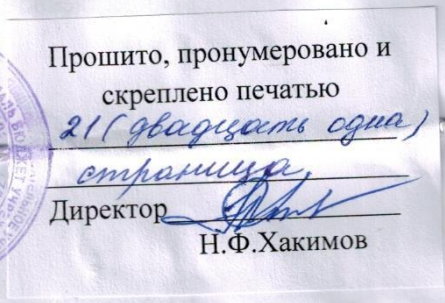 Прошито, пронумеровано и
скреплено печатью
21 (двадцать одна)
страница
Директор
Н.Ф.Хакимов